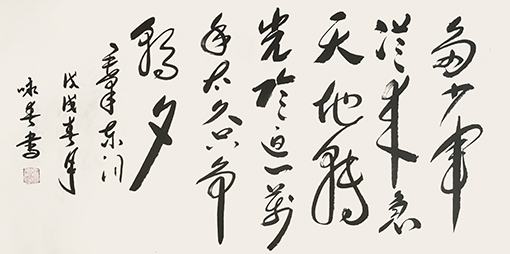 多少事
從来急
天地轉
光陰迫一萬
年太久只争
朝夕
毛泽东词
戊戌春月
咏春書